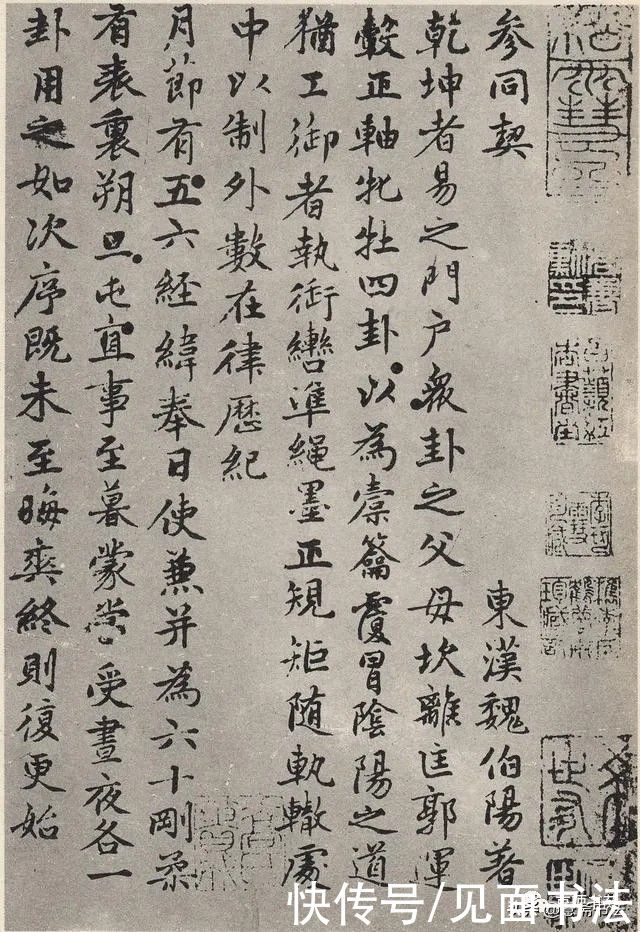 參同契
東漢魏伯陽著
乾坤者易之門户衆卦之父母坎離匡郭運
轂正軸牝牡四卦以為橐籥覆冒陰陽之道
猶工御者執銜轡準繩墨正規矩随軌轍處
中以制外數在律歷紀
月節有五六經緯奉日使蒹并為六十剛柔
有表裏朔旦屯直事至暮蒙當受晝夜各一
卦用之如次序既未至晦爽終則復更始
快传号/见面书法